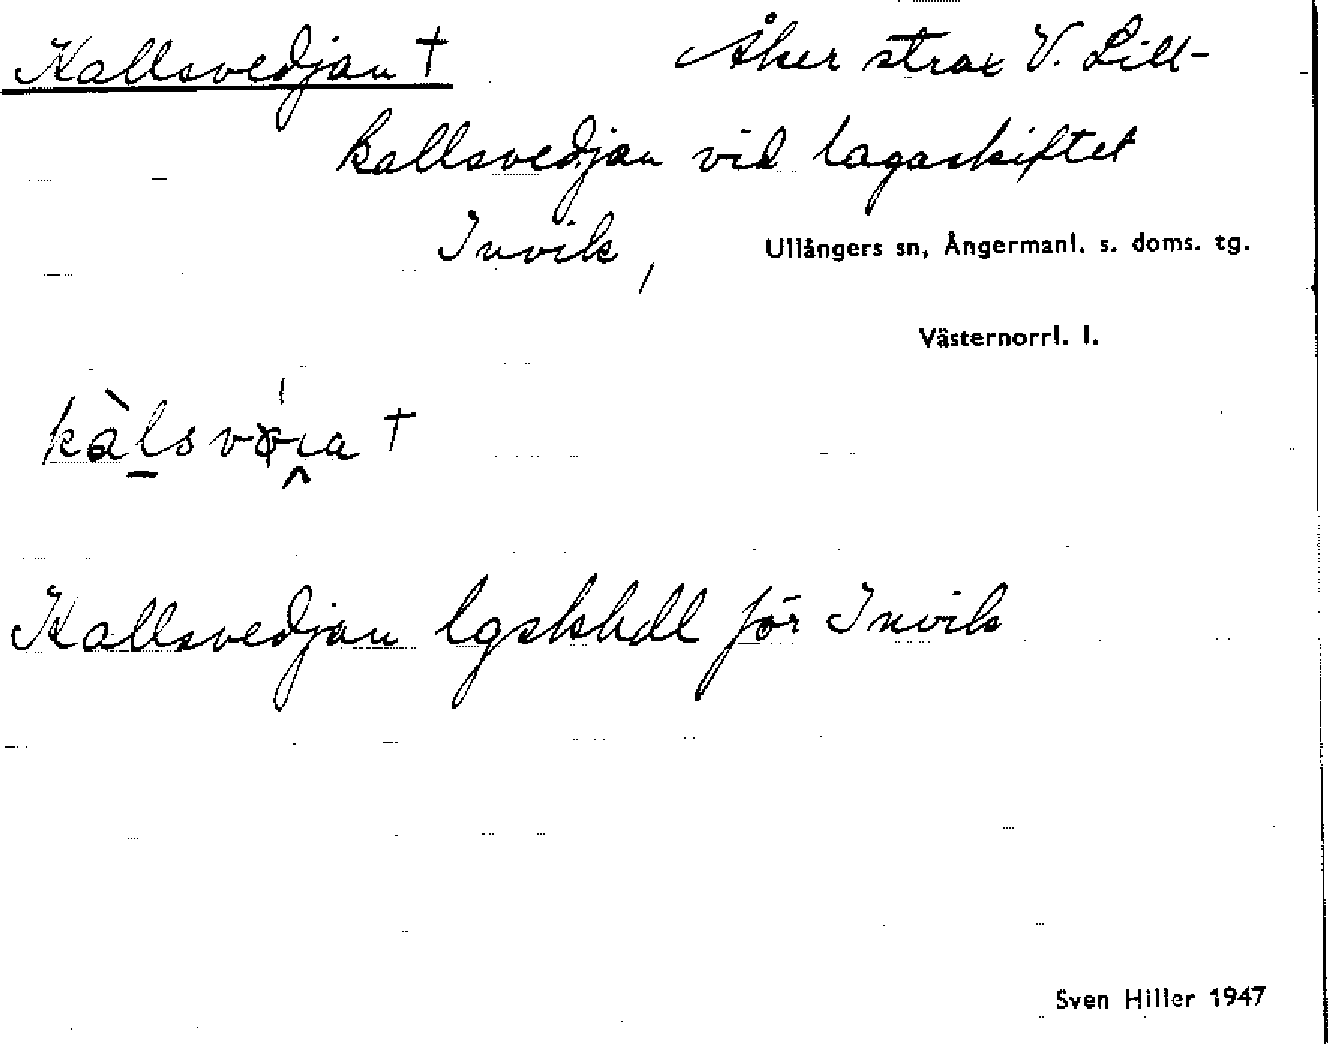 Kallsvedjan † Åker strax V. Lill-
kallsvedjan vid lagaskiftet
Invik, Ullångers sn, Ångermanl. s. doms. tg.
Västernorrl. l.
Kallsvedjan lgskhdl för Invik
Sven Hiller 1947